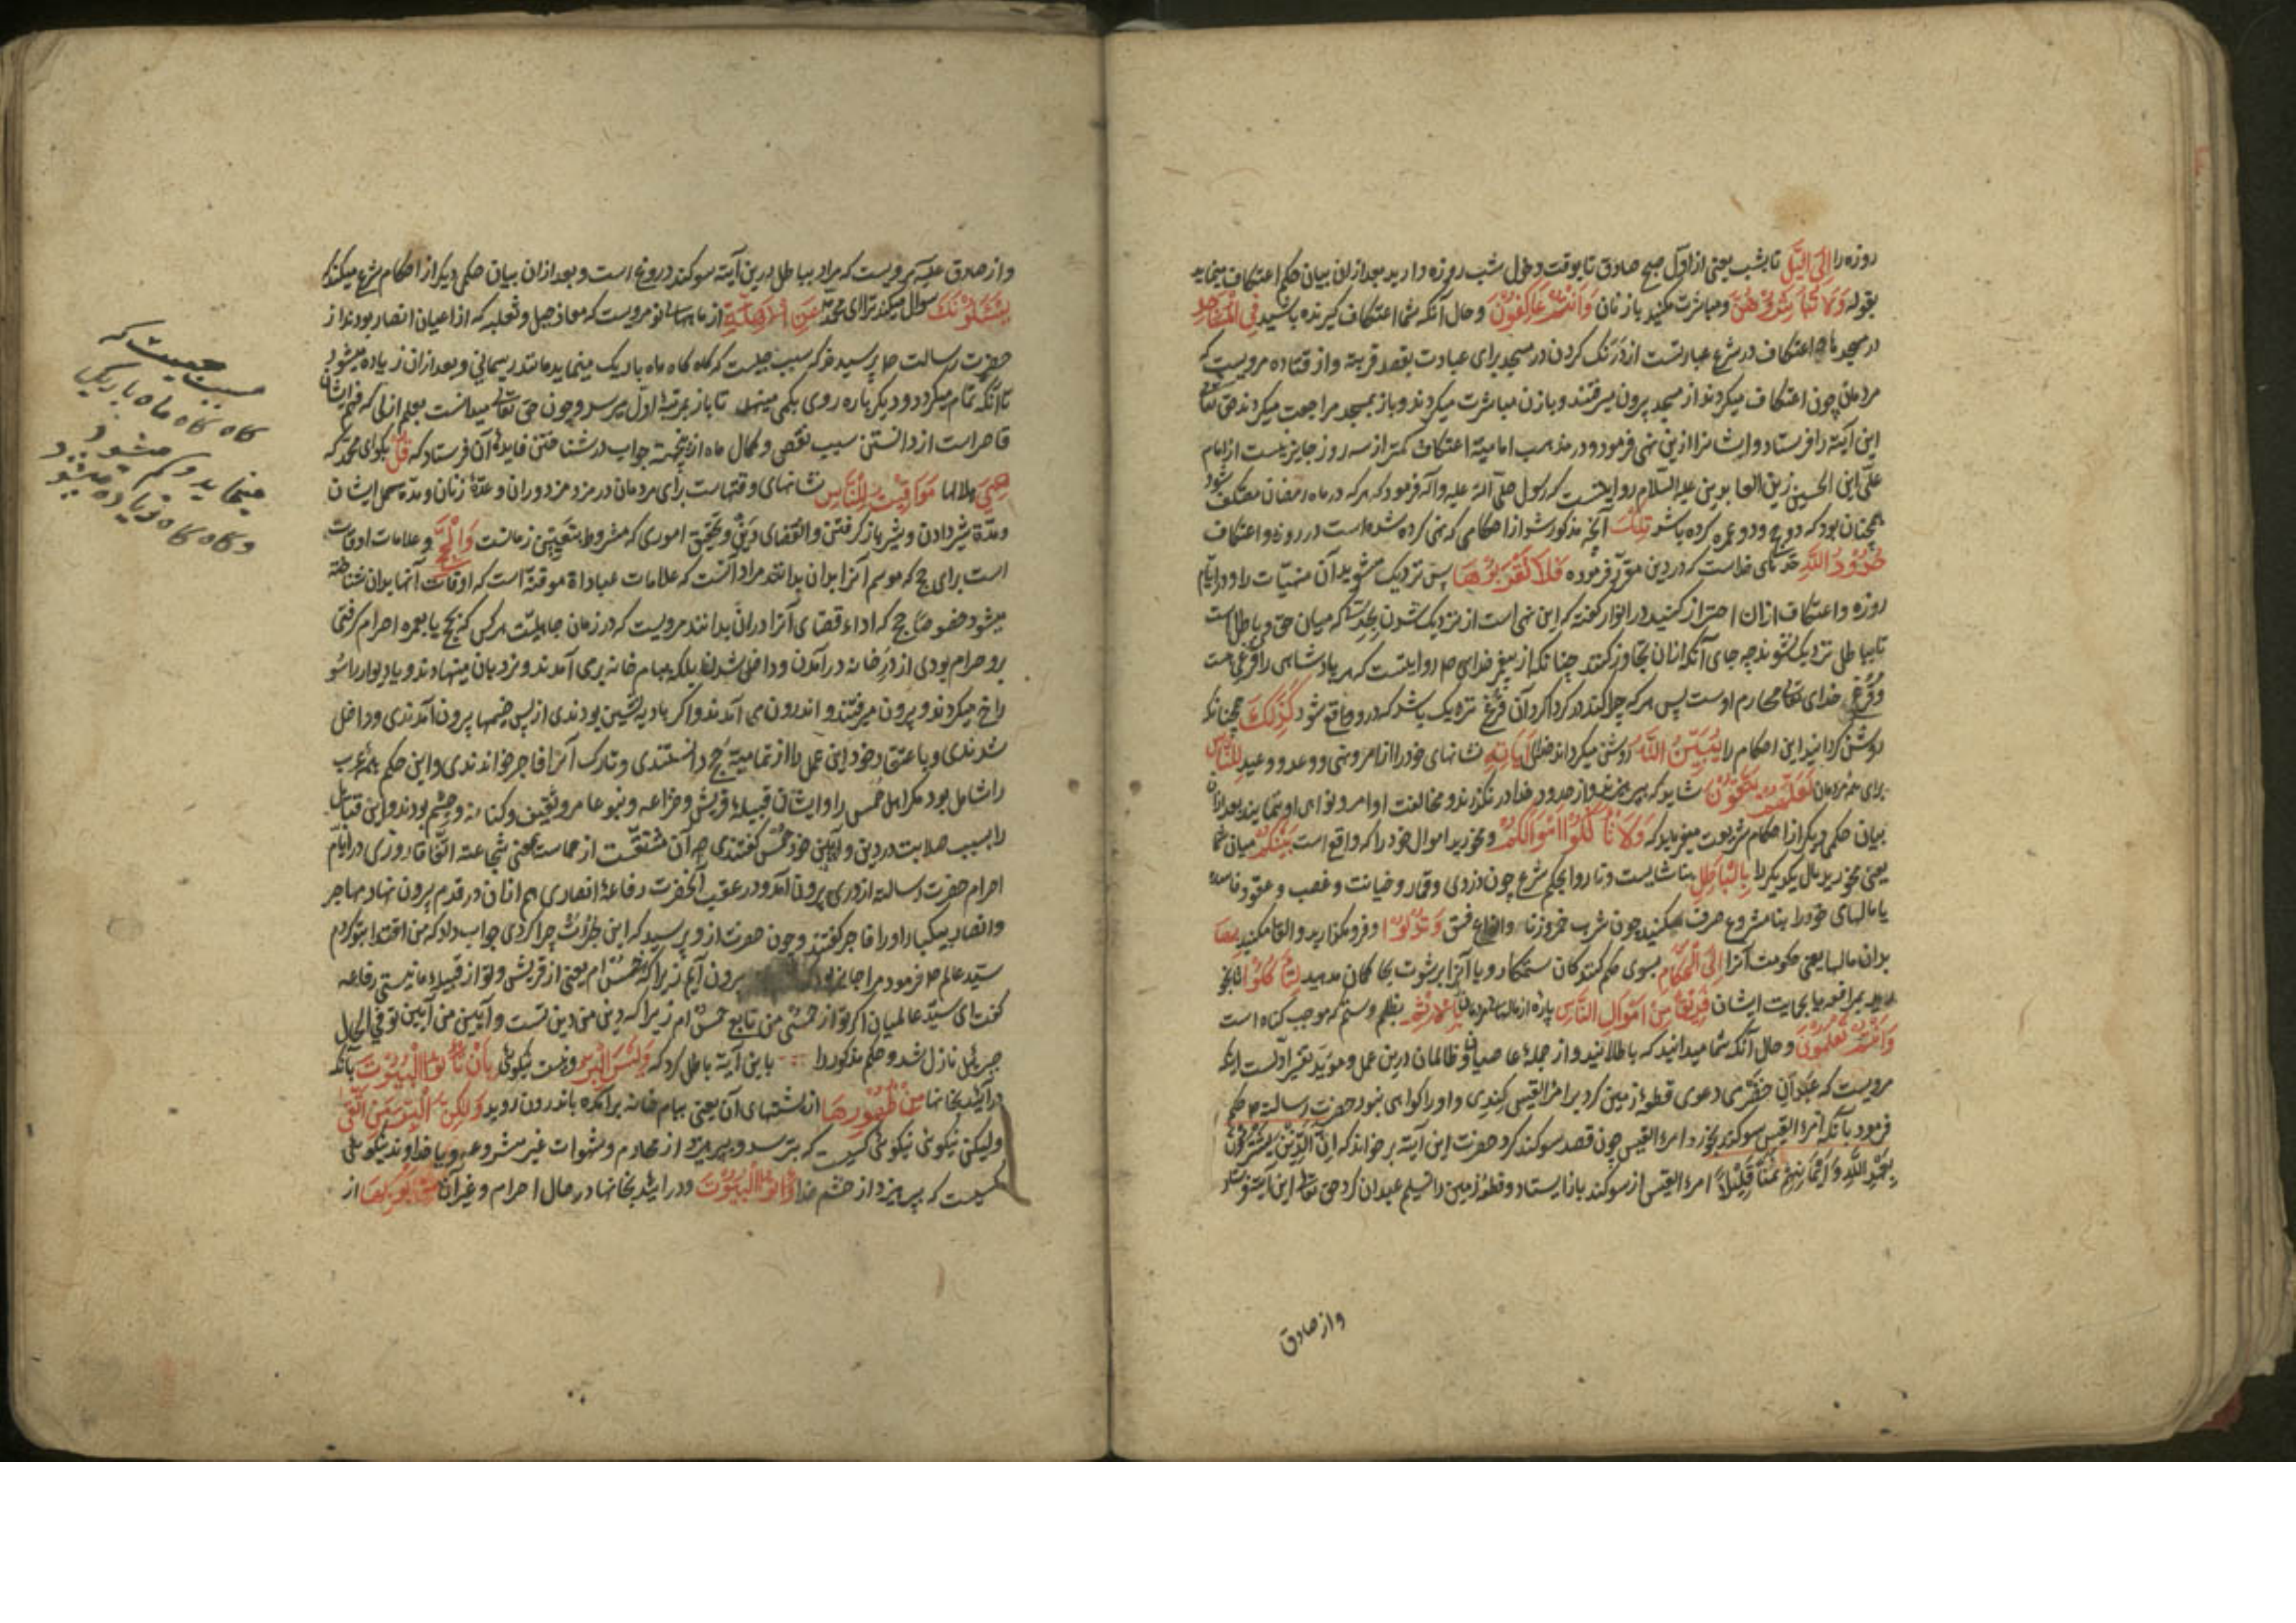 روزه را اِلَی الَّیلِ تا بشب یعنی از اول صبح صادق تا بوقت دخول شب روزه دارید بعد از ان بیان حکم اعتکاف مینماید
بقوله وَلا تُبَاشِرُوهُنَّ و مباشرت مکنید با زنان وَاَنتُم عَاکِفُونَ و حال آنکه شما اعتکاف گیرنده باشید فِی المَسَاجِدِ
در مسجدها اعتکاف در شرع عبارتست از درنک کردن در مسجد برای عبادت بقصد قربة و از قتاده مرویست که
مردمان چون اعتکاف میکردند از مسجد بیرون میرفتند و با زن مباشرت میکردند و باز بمسجد مراجعت میکردند حق تعالی
این آیة را فرستاد و ایشانرا ازین نهی فرمود و در مذهب امامیة اعتکاف کمتر از سه روز جایز نیست از امام
علی ابن الحسین زین العابدین علیه السلام روایتست که رسول صلی الله علیه و آله فرمود که هر که در ماه رمضان معتکف شود
همچنان بود که دو حج و دو عمره کرده باشد تِلکَ آنچه مذکور شد از احکامی که نهی کرده شده است در روزه و اعتکاف
حُدُودُ اللّٰهِ حدهای خداست که در دین مقرر فرموده فَلا تَقرَبُوهَا پس نزدیک مشوید آن منهیات را و در ایام
روزه و اعتکاف ازان احتراز کنید در انوار گفته که این نهی است از نزدیک شدن بحدیکه میان حق و باطل است
تا بباطل نزدیک نشوند چه جای آنکه ازان تجاوز کنند چنانکه از پیغمبر خدای ص روایتست که هر پادشاهی را قرغی هست
و قرغ خدای تعالی محارم اوست پس هر که چرا کند در کرداکرد آن قرغ نزدیک باشد که درو واقع شود کَذٰلِکَ همچنانکه
روشن کردانید این احکام را یُبَیِّنُ اللّٰهُ روشن میکرداند خدای آیَاتِهِ نشانهای خود را از امر و نهی و وعد و وعید لِلنَّاسِ
برای مردمان لَعَلَّهُم یَتَّقُونَ شاید که بپرهیزند و از حدود خدا در نگذرند و مخالفت اوامر و نواهی او ننمایند بعد ازان
بیان حکمی دیکر از احکام شریعت میفرماید که وَلا تَأکُلُوا اَموَالَکُم و مخورید اموال خود را که واقع است بَینَکُم میان شما
یعنی مخورید مال یکدیکر را بِالبَاطِلِ بناشایست و ناروا بحکم شرع چون دزدی و قمار و خیانت و غصب و عقود فاسده
یا مالهای خود را بنامشروع صرف مکنید چون شرب خمر و زنا و انواع فسق وَتُدلُوا و فرو مکذارید و القا مکنید بِهَا
بدان مالها یعنی حکومت آنرا اِلَی الحُکَّامِ بسوی حکم کنندکان ستمکار و یا آنرا برشوت بحاکمان مدهید لِتَأکُلُوا تا بخو
رید بمرافعه یا بحمایت ایشان فَرِیقًا مِن اَموَالِ النَّاسِ پارۀ از مالهای مردمان بِالاِثمِ بظلم و ستم که موجب کناه است
وَاَنتُم تَعلَمُونَ و حال آنکه شما میدانید که باطلانید و از جملۀ عاصیان و ظالمان درین عمل و مؤید تفسیر اولست آنکه
مرویست که عبدان حضرمی دعوی قطعۀ زمین کرد بر امرء القیس کندی و او را کواهی نبود حضرت رسالة ص حکم
فرمود بآنکه امرء القیس سوکند بخورد امرء القیس چون قصد سوکند کرد حضرت این آیة برخواند که اِنَّ الَّذِینَ یَشتَرُونَ
بِعَهدِ اللّٰهِ وَاَیمَانِهِم ثَمَنًا قَلِیلاً امرء القیس از سوکند باز ایستاد و قطعۀ زمین را تسلیم عبدان کرد حق تعالی این آیة فرستاد
واز صادق
و از صادق علیه مرویست که مراد بباطل درین آیة سوکند دروغ است و بعد ازان بیان حکمی دیکر از احکام شرع میکند
یَسئَلُونَکَ سوال میکند ترا ای محمد عَنِ الاَهِلَّةِ از ماههای نو مرویست که معاذ جبل و ثعلبه که از اعیان انصار بودند از
حضرت رسالت ص پرسیدند که سبب چیست که کاه کاه ماه باریک مینماید مانند ریسمانی و بعد ازان زیاده میشود
تا آنکه تمام میکردد و دیکر باره روی بکمی مینهد تا باز بمرتبۀ اول میرسد و چون حق تعالی میدانست بعلم ازلی که فهم ایشان
قاصر است از دانستن سبب نقص و کمال ماه ازین جهة جواب در شناختن فایدۀ آن فرستاد که قُل بکو ای محمد که
هِیَ هلالها مَوَاقِیتُ لِلنَّاسِ نشانهای وقتهاست برای مردمان در مزد مزدوران و عدۀ زنان و مدة حمل ایشان
و مدة شیر دادن و شیر باز کرفتن و انقضای دین و تحقیق اموری که مشروط بتعیین زمانست وَالحَجِّ و علامات اوقات
است برای حج که موسم آنرا بدان بدانند مراد آنست که علامات عباداة موقتة است که اوقات آنها بدان شناخته
میشود خصوصا حج که اداء و قضای آنرا دران بدانند مرویست که در زمان جاهلیت هر کس که بحج یا بعمره احرام کرفتی
برو حرام بودی از در خانه درآمدن و داخل شدن بلکه ببام خانه برمی آمدند و نردبان مینهادند و یا دیوار را سو
راخ میکردند و بیرون میرفتند و اندرون می آمدند و اکر بادیه نشین بودندی از پس خیمها بیرون آمدندی و داخل
شدندی و باعتقاد خود این عمل را از تمامیة حج دانستندی و تارک آنرا فاجر خواندندی و این حکم همه عرب
را شامل بود مکر اهل حمس را و ایشان قبیلۀ قریش و خزاعه و بنو عامر و ثقیف و کنانه و جشم بودند و این قبایل
را بسبب صلابت در دین و آیین خود حمس کفتندی چه آن مشتقست از حماست بمعنی شجاعة اتفاقا روزی در ایام
احرام حضرت رسالة از دری بیرون آمد و در عقب آنحضرت رفاعۀ انصاری هم ازان در قدم بیرون نهاد مهاجر
و انصار بیکبار او را فاجر کفتند و چون حضرت ازو پرسید که این جرات چرا کردی جواب داد که من اقتدا بتو کردم
سید عالم ص فرمود مرا جایز بود بیرون آیم زیرا که حمس ام یعنی از قریش و تو از قبیلۀ ما نیستی رفاعه
کفت ای سید عالمیان اکر تو از حمسی من تابع حمس ام زیرا که دین من دین تست و آیین من آیین تو فی الحال
جبرئیل نازل شد و حکم مذکور را باین آیة باطل کرد که وَلَیسَ البِرُّ و نیست نیکوئی بِاَن تَأتُوا البُیُوتَ بآنکه
درآیید بخانها مِن ظُهُورِهَا از پشتهای آن یعنی ببام خانه برآمده باندرون روید وَلٰکِنَّ البِرَّ مَنِ اتَّقٰی
و لیکن نیکوئی نیکوئی کسیست که بترسد و بپرهیزد از محارم و شهوات غیر مشروعه و یا خداوند نیکوئی
کسیست که بپرهیزد از خشم خدا وَأتُوا البُیُوتَ و درآیید بخانها در حال احرام و غیر آن مِن اَبوَابِهَا از
سبب چیست که
کاه کاه ماه باریک
مینماید و کم میشود
و کاه کاه زیاده میشود